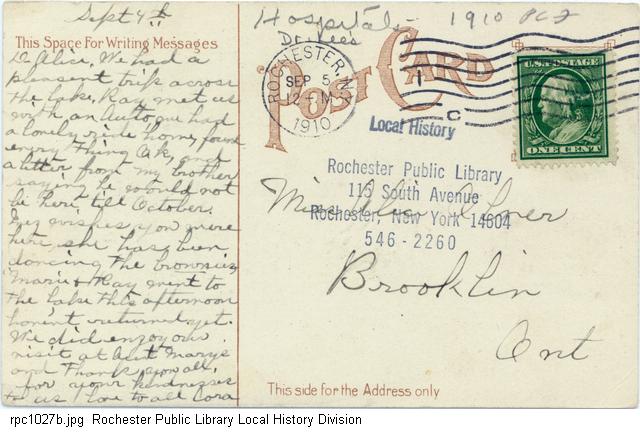 Sept 4th
Hospitals - 1910 PC2
Dr. Lee's
This Space For Writing Messages
POST CARD
ROCHESTER, N.Y.
SEP 5
12-M
1910
C
U.S. POSTAGE
ONE CENT
D Alice, We had a
pleasant trip across
the lake, Ray met us
with an Auto, we had
a lovely ride home, found
every thing O.k., and
a letter from my brother
saying he would not
be here till October.
Evy wishes you were
here, she has been
dancing the brownies
Marie & Ray went to
the lake this afternoon
haven't returned yet.
We did enjoy our
visit at Aunt Marys
and Thank you all,
for your kindnesses
to us Love to all Cora
Local History
Rochester Public Library
115 South Avenue
Rochester, New York 14604
546-2260
Miss Alice
Brooklin
Ont
This side for the Address only
rpc1027b.jpg Rochester Public Library Local History Division